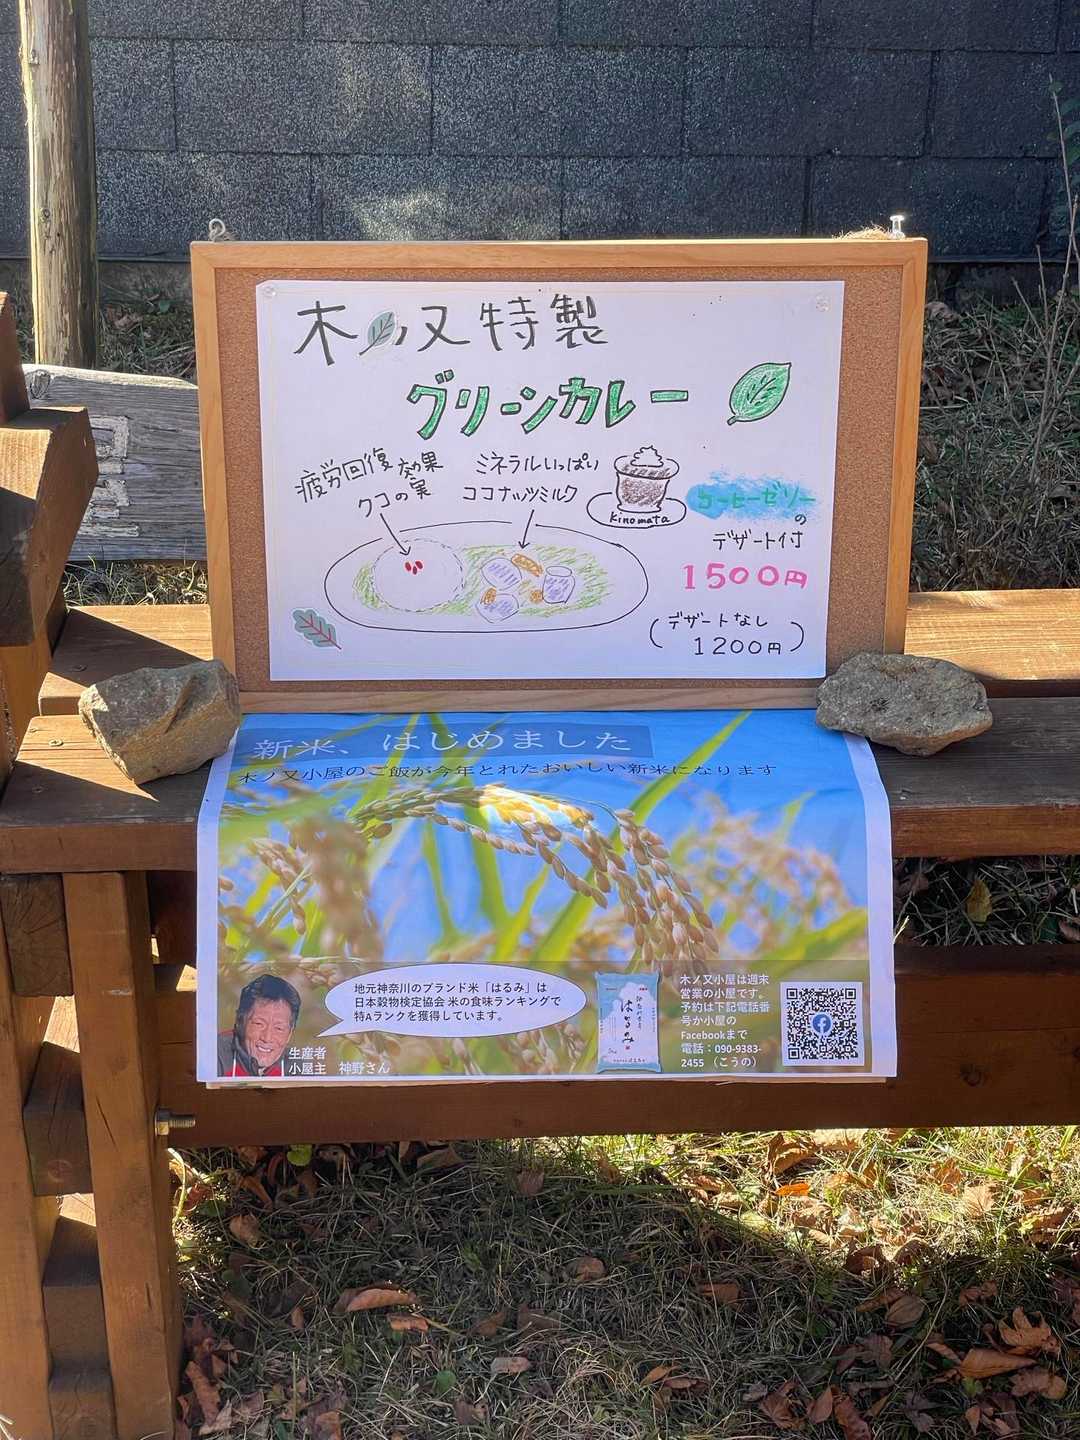 木ノ又特製
グリーンカレー
疲労回復効果
クコの実
ミネラルいっぱい
ココナッツミルク
kinomata
コーヒーゼリー
の
デザート付
1500円
(デザートなし
1200円)
新米、はじめました
木ノ又小屋のご飯が今年とれたおいしい新米になります
地元神奈川のブランド米「はるみ」は
日本穀物検定協会 米の食味ランキングで
特Aランクを獲得しています。
生産者
小屋主 神野さん
はるみ
木ノ又小屋は週末
営業の小屋です。
予約は下記電話番
号か小屋の
Facebookまで
電話：090-9383-
2455 （こうの）